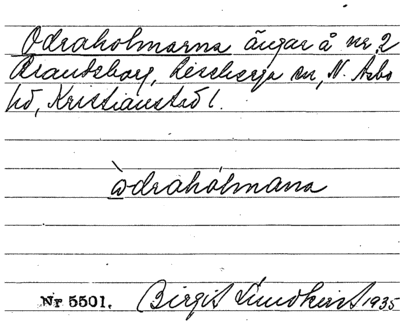 Odraholmarna ängar å nr 2
Brandeborg, Riseberga sn, N. Åsbo
hd, Kristianstad l.
òdrahólmana
Nr 5501. Birgit Lundkvist 1935